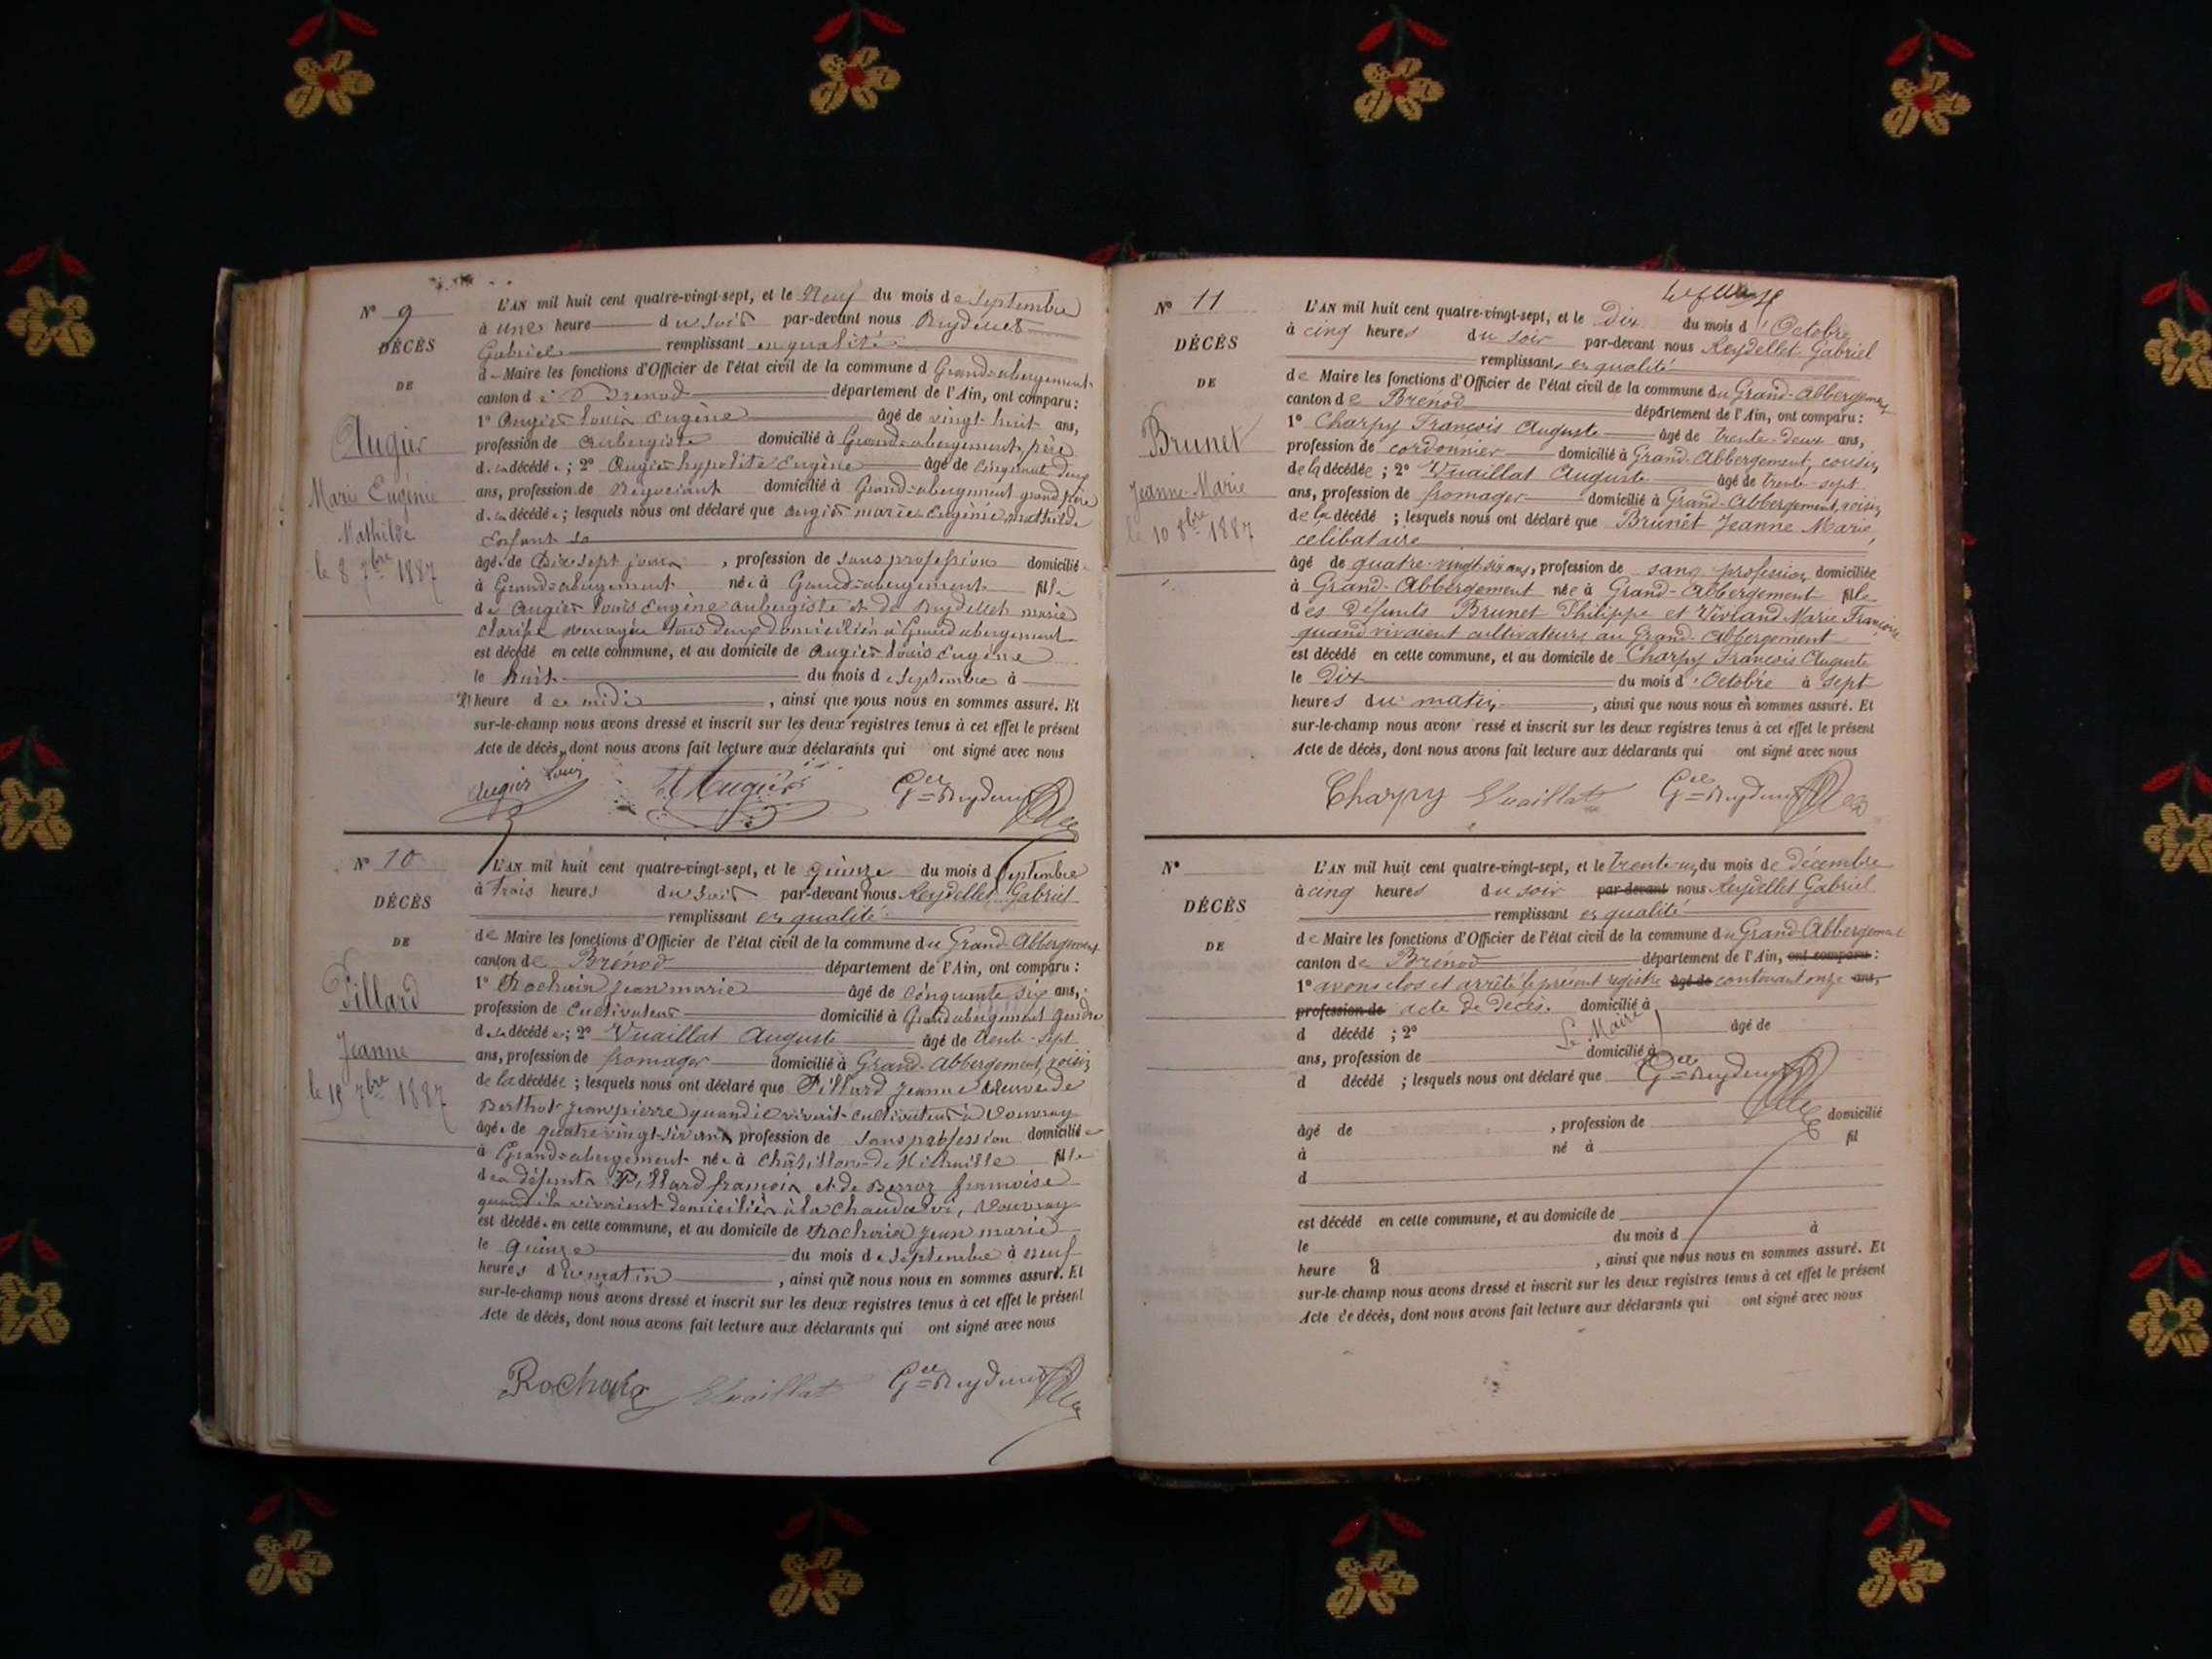 N° 9
DÉCÈS
DE
Augier
Marie Eugénie
Mathilde
le 8 7bre 1887
L'AN mil huit cent quatre-vingt-sept, et le Neuf du mois de Septembre
à une heure du soir par-devant nous Reydellet
Gabriel remplissant en qualité
de Maire les fonctions d'Officier de l'état civil de la commune d Grand-abergement
canton de Brenod département de l'Ain, ont comparu :
1° Augier Louis Eugène âgé de vingt-huit ans,
profession de aubergiste domicilié à Grand-abergement, père
de la décédée ; 2° Augier hypolite Eugène âgé de cinquante deux
ans, profession de Negociant domicilié à Grand-abergement grand père
de la décédée ; lesquels nous ont déclaré que augier marie Eugénie mathilde
Enfant
âgée de Dix sept jours , profession de sans profession domicilié
à Grand-abergement née à Grand-abergement fille
de Augier Louis Eugène aubergiste et de Reydellet marie
clarisse menagère tous deux domiciliés à Grand abergement
est décédé en cette commune, et au domicile de Augier Louis Eugène
le huit du mois de Septembre à
heure de midi , ainsi que nous nous en sommes assuré. Et
sur-le-champ nous avons dressé et inscrit sur les deux registres tenus à cet effet le présent
Acte de décès, dont nous avons fait lecture aux déclarants qui ont signé avec nous
Augier Louis Augier Gel Reydellet
N° 10
DÉCÈS
DE
Pillard
Jeanne
le 15 7bre 1887
L'AN mil huit cent quatre-vingt-sept, et le quinze du mois d Septembre
à trois heures du soir par-devant nous Reydellet Gabriel
remplissant es qualité
de Maire les fonctions d'Officier de l'état civil de la commune du Grand-Abbergement
canton de Brénod département de l'Ain, ont comparu :
1° Rochaix Jean marie âgé de cinquante six ans,
profession de cultivateur domicilié à Grand abergement gendre
de la décédée ; 2° Vuaillat Auguste âgé de trente-sept
ans, profession de fromager domicilié à Grand-Abbergement, voisin
de la décédée ; lesquels nous ont déclaré que Pillard Jeanne veuve de
Berthet Jean pierre quand il vivait cultivateur à Vouvray
âgée de quatre vingt-six ans profession de sans profession domiciliée
à Grand-abergement née à Châtillon-de-Michaille fille
des défunts Pillard françois et de Berrox françoise
quand ils vivaient domiciliés à la Vouvray
est décédée en cette commune, et au domicile de Rochaix Jean marie
le quinze du mois de Septembre à neuf
heures du matin , ainsi que nous nous en sommes assuré. Et
sur-le-champ nous avons dressé et inscrit sur les deux registres tenus à cet effet le présent
Acte de décès, dont nous avons fait lecture aux déclarants qui ont signé avec nous
Rochaix Vuaillat Gel Reydellet
N° 11
DÉCÈS
DE
Brunet
Jeanne-Marie
le 10 8bre 1887
L'AN mil huit cent quatre-vingt-sept, et le Dix du mois d'Octobre
à cinq heures du soir par-devant nous Reydellet Gabriel
remplissant, es qualité
de Maire les fonctions d'Officier de l'état civil de la commune du Grand-Abbergement
canton de Brénod département de l'Ain, ont comparu :
1° Charpy François Auguste âgé de trente-deux ans,
profession de cordonnier domicilié à Grand-Abbergement, cousin
de la décédée ; 2° Vuaillat Auguste âgé de trente-sept
ans, profession de fromager domicilié à Grand-Abbergement, voisin
de la décédé ; lesquels nous ont déclaré que Brunet Jeanne Marie,
celibataire
âgé de quatre-vingt-six ans, profession de sans profession domiciliée
à Grand-Abbergement née à Grand-Abbergement fille
des Défunts Brunet Philippe et Vivland Marie Françoise
quand vivaient cultivateurs au Grand-Abbergement
est décédé en cette commune, et au domicile de Charpy François Auguste
le Dix du mois d'Octobre à sept
heures du matin , ainsi que nous nous en sommes assuré. Et
sur-le-champ nous avons ressé et inscrit sur les deux registres tenus à cet effet le présent
Acte de décès, dont nous avons fait lecture aux déclarants qui ont signé avec nous
Charpy Vuaillat Gel Reydellet
N°
DÉCÈS
DE
L'AN mil huit cent quatre-vingt-sept, et le trente-un du mois de décembre
à cinq heures du soir par-devant nous Reydellet Gabriel
remplissant es qualité
de Maire les fonctions d'Officier de l'état civil de la commune du Grand-Abbergement
canton de Brénod département de l'Ain, ont comparu :
1° avons clos et arrêté le présent registre âgé de contenant onze ans,
profession de acte de décès. domicilié à
d décédé ; 2° Le Maire, âgé de
ans, profession de domicilié à
d décédé ; lesquels nous ont déclaré que Gel Reydellet
âgé de , profession de domicilié
à né à fil
d
est décédé en cette commune, et au domicile de
le du mois d à
heure d , ainsi que nous nous en sommes assuré. Et
sur-le-champ nous avons dressé et inscrit sur les deux registres tenus à cet effet le présent
Acte de décès, dont nous avons fait lecture aux déclarants qui ont signé avec nous